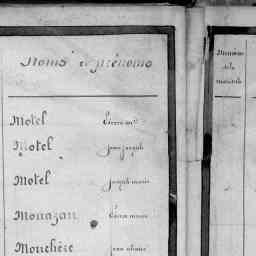 Noms et prénoms
Numéros
de la
matricule
Motel Pierre m^ie
Motel Jean Joseph
Motel Joseph marie
Mouazan Pierre marie
Mouchère Jean